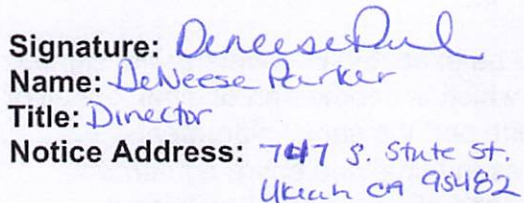 Signature: DeneesePul
Name: DeNeese Parker
Title: Director
Notice Address: 747 S. State St.
Ukiah CA 95482